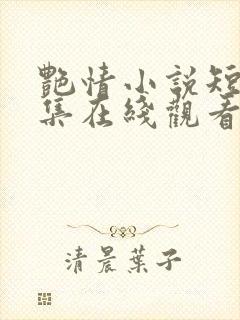 艷情小說短
集在綫觀看
清晨葉子